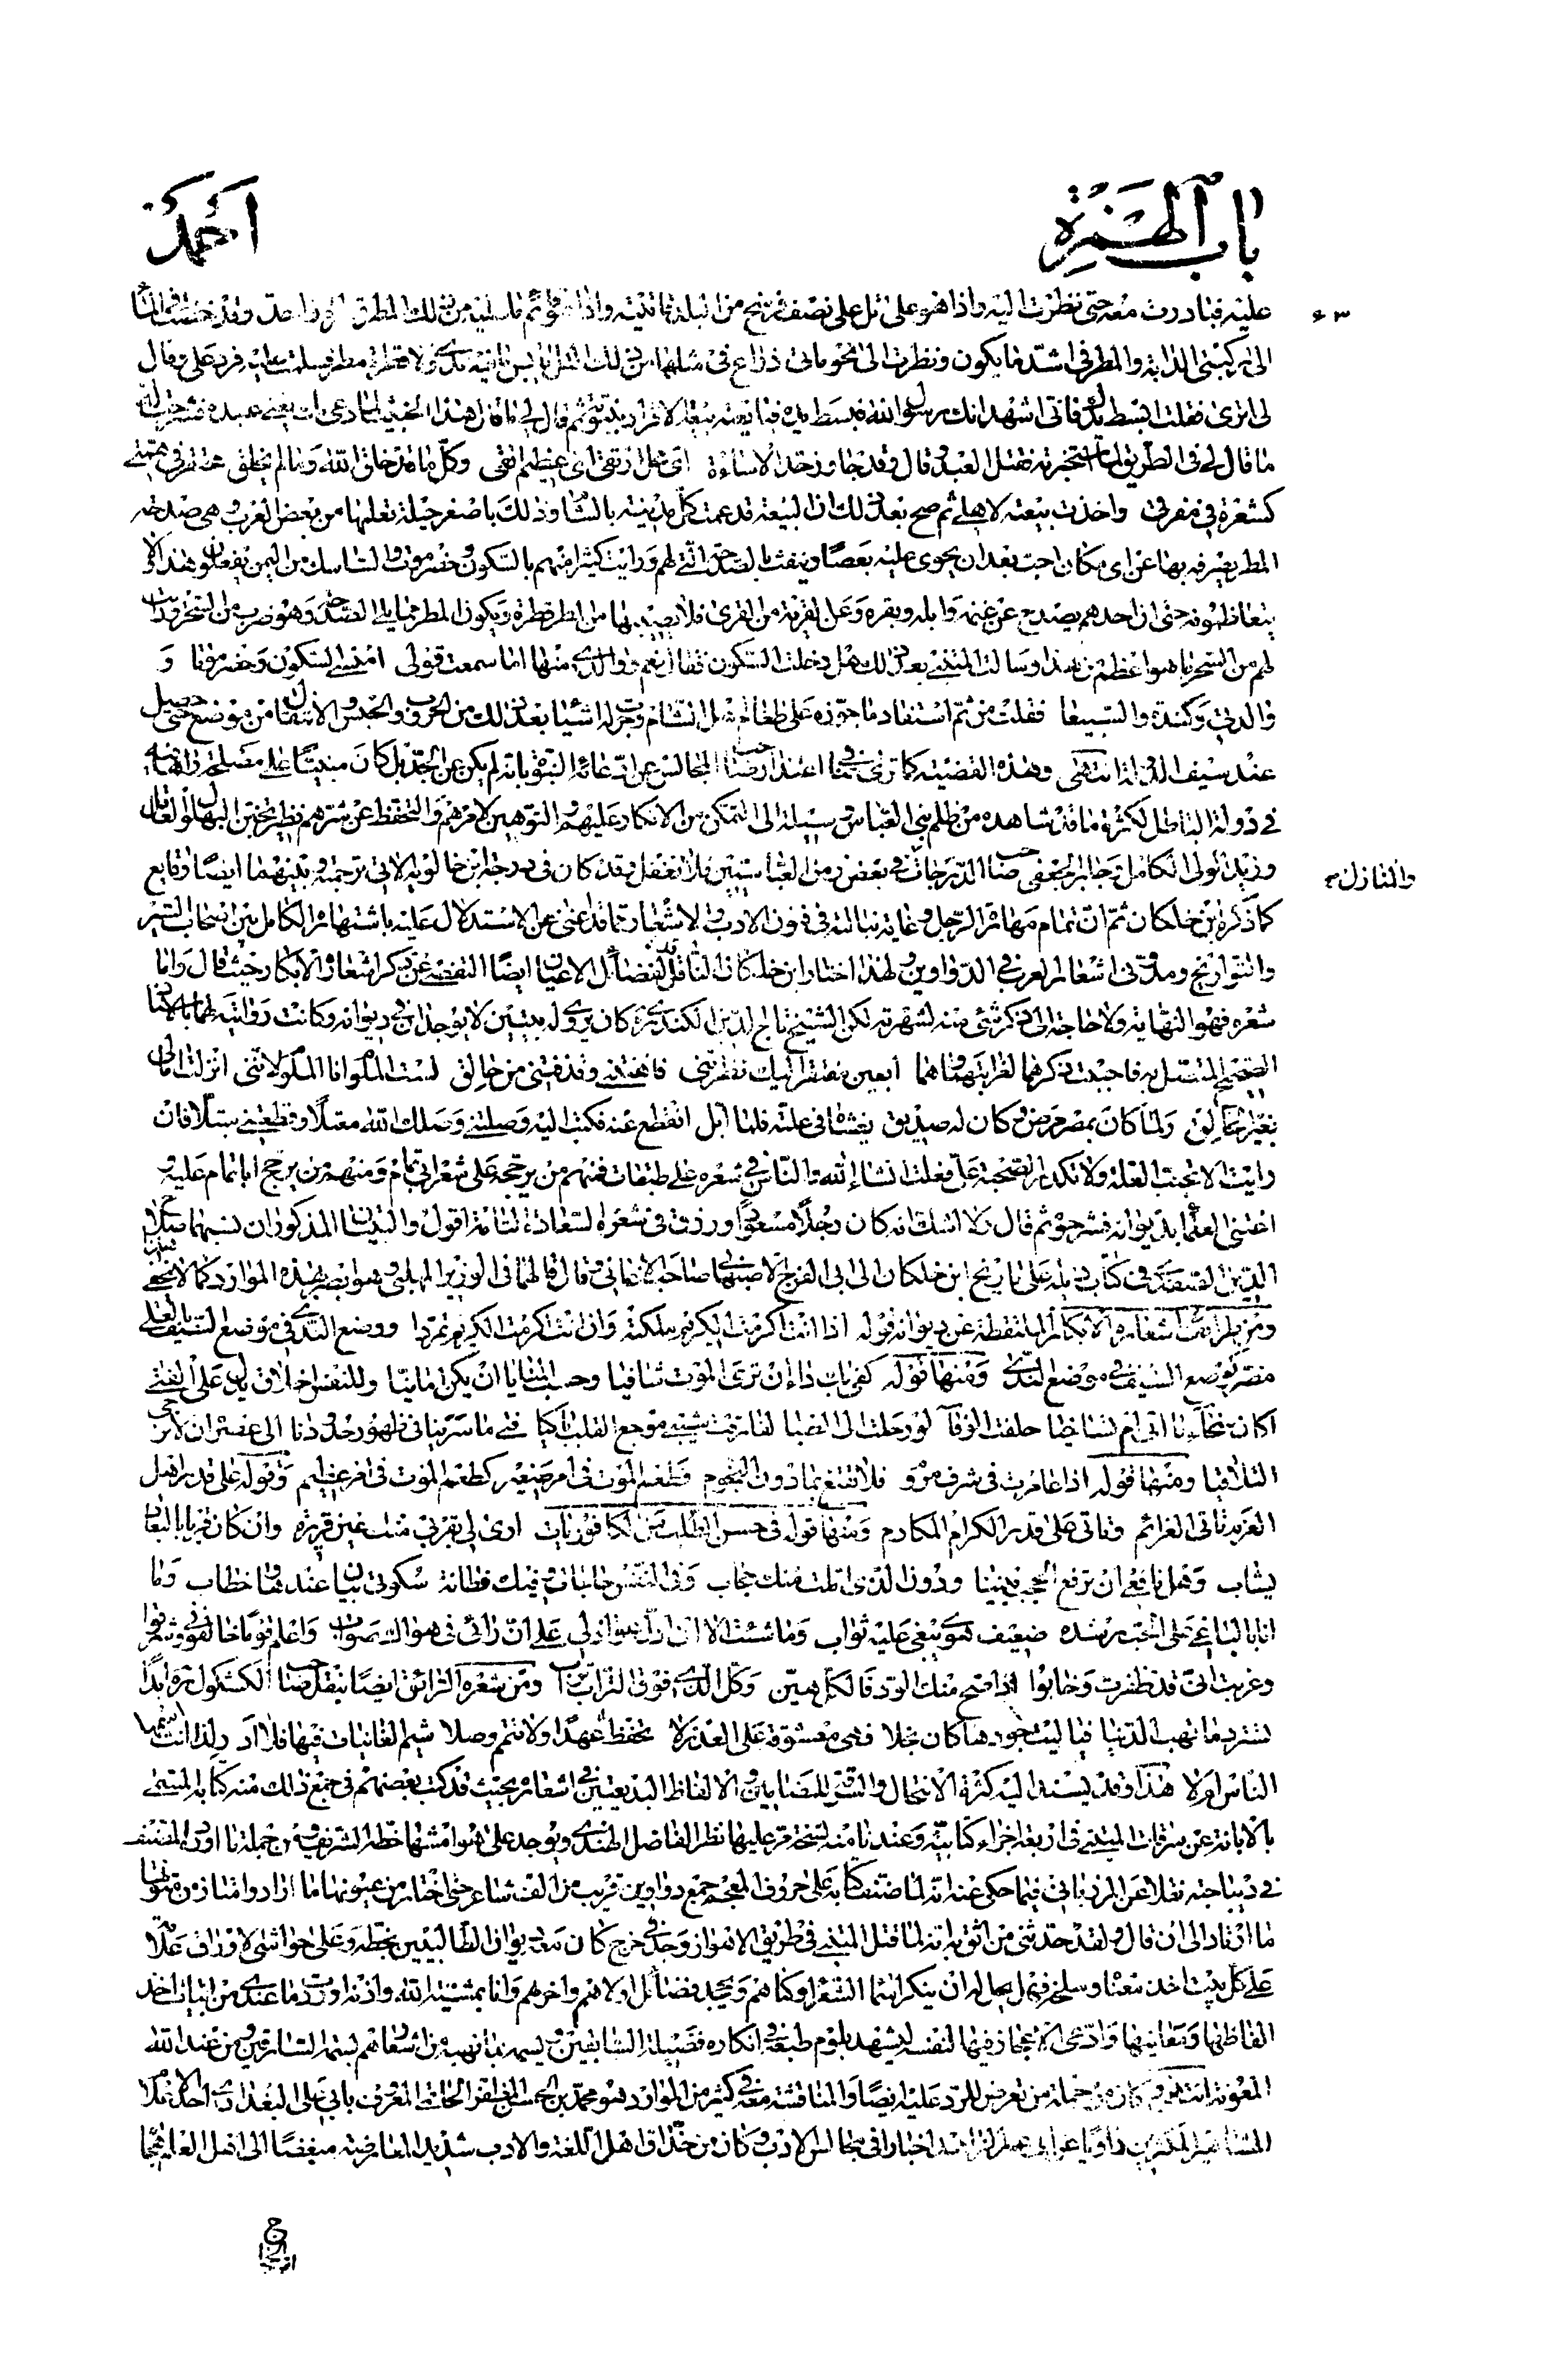 باب الهمزة
أحمد
عليه فبادرت معه حتى نظرت اليه واذا هو على تل على نصف فرسخ من البلد فاتيته واذا هو قائم ما عليه من ذلك المطر
الى ركبتى الدابة والمطر فى اشد ما يكون ونظرت الى نحو مأتى ذراع فى مثلها من ذلك التل يابس ما فيه ندى ولا قطرة مطر فسلمت عليه فرد على وقال
لى ما ترى فقلت ابسط يدك فانى اشهد انك رسول الله فبسط يده فبايعته بيعة الاقرار بنبوته ثم قال لى
ما قال لى فى الطريق لما استخبرته فقتل العبد وقال وقد جاوز حد الاساءة اى محل ارتقى اى عظيم اتقى وكل ما قد خلق الله وما لم يخلق محتقر فى همتى
كشعرة فى مفرقى واخذت بيعته لاهلى ثم صح بعد ذلك ان البيعة قد عمت كل مدينة بالشام وذلك باصغر حيلة تعلمها من بعض العرب وهى صدحة
المطر يصرفه بها عن اى مكان احب بعد ان يحوى عليه بعصا وينفث بالصدحة التى لهم ورايت كثيرا منهم بالسكون وحضرموت والسكاسك من اليمن يفعلون هذا ولا
يتعاظمونه حتى ان احدهم يصدح عن غنمه وابله وبقره وعن القرية من القرى فلا يصيبها من المطر قطرة ويكون المطر مما يلى الصدحة وهو ضرب من السحر ورايت
لهم من السحر ما هو اعظم من هذا وسالت المتنبى بعد ذلك هل دخلت السكون فقال نعم ووالدى منها اما سمعت قولى امنسى السكون وحضرموتا و
والدتى وكندة والسبيعا فقلت من ثم استفاد ما جوزه على طغام اهل الشام وجرت له اشياء بعد ذلك من الحروب والحبس والانتقال من موضع حتى حصل
عند سيف الدولة انتهى وهذه القضية كما ترى فيما اعتذار صاحب المجالس عن ادعائه النبوة بانه لم يكن عن الجد بل كان مبنيا على مصلحة زمانه
فى دولة الباطل لكثرة ما قد شاهده من ظلم بنى العباس وسيلة الى التمكن من الانكار عليهم والتوهين لامرهم والتحفظ عن شرهم نظير تجنن البهلول العاقل
وقد كان فى درجة ابن خالويه الآتى ترجمته وبينهما ايضا وقايع
والنازل
كما ذكره ابن خلكان ثم ان تمام مهارة الرجل وغاية نبالته فى فنون الادب والاشعار مما قد اغنى عن الاستدلال عليه باشتهاره الكامل بين اصحاب السير
والتواريخ ومدونى اشعار العرب فى الدواوين ولهذا اختار ابن خلكان الناقل لفضائل الاعيان ايضا التفصى عن ذكر اشعاره الابكار حيث قال واما
شعره فهو النهاية ولا حاجة الى ذكر شىء منه لشهرته لكن الشيخ تاج الدين الكندى ره كان يروى له بيتين لا يوجدان فى ديوانه وكانت روايته لهما بالاسناد
الصحيح المتصل به فاحببت ذكرهما لغرابتهما وهما ابعين مفتقر اليك نظرتنى فاهنتنى وقذفتنى من حالق لست الملوم انا الملوم لاننى انزلت امالى
بغير الخالق ولما كان بمصر مرض وكان له صديق يغشاه فى علته فلما ابل انقطع عنه فكتب اليه وصلتنى وصلك الله معتلا وقطعتنى مبتلا فان
رايت لا تحبب العلة ولا تكدر الصحة على فعلت انشاء الله والناس فى شعره على طبقات فمنهم من يرجحه على شعر ابى تمام ومنهم من يرجح اباتمام عليه و
اعتنى العلماء بديوانه فشرحوه ثم قال ولا اشك انه كان رجلا مسعودا ورزق فى شعره السعادة التامة اقول والبيتان المذكوران نسبهما صلاح
الدين الصفدى فى كتاب ذيله على تاريخ ابن خلكان الى ابى الفرج الاصبهانى صاحب الاغانى وقال قالهما فى الوزير المهلبى وهو ابصر بهذه الموارد كما لا يخفى
ومن طرائف اشعاره الابكار الملتقطة عن ديوانه قوله اذا انت اكرمت الكريم ملكته وان انت اكرمت اللئيم تمردا ووضع الندى فى موضع السيف بالعلى
مضر كوضع السيف فى موضع الندى ومنها قوله كفى بك داء ان ترى الموت شافيا وحسب المنايا ان يكن امانيا وللنفس اخلاق تدل على الفتى
اكان سخاء ما اتى ام تساخيا خلقت الوفا لو رحلت الى الصبا لفارقت شيبى موجع القلب باكيا
ومنها قوله اذا غامرت فى شرف مروم فلا تقنع بما دون النجوم فطعم الموت فى امر صغير كطعم الموت فى امر عظيم وقوله على قدر اهل
العزم تاتى العزائم وتاتى على قدر الكرام المكارم ومنها قوله فى حسن الطلب من الكافوريات ارى لى بقربى منك عينا قريرة وان كان قربا بالبعاد
يشاب وهل نافعى ان ترفع الحجب بيننا ودون الذى املت منك حجاب وفى النفس حاجات وفيك فطانة سكوتى بيان عندها وخطاب وما
انا بالباغى على الحب رشوة ضعيف هوى يبغى عليه ثواب وما شئت الا ان ادل عواذلى على ان رائى فى هواك صواب واعلم قوما خالفونى وشرقوا
وغربت انى قد ظفرت وخابوا اذا صح منك الود فالكل هين وكل الذى فوق التراب تراب ومن شعره الرائق ايضا بنقل صاحب الكشكول ره ابدا
تسترد ما تهب الدنيا فيا ليت جودها كان بخلا فهى معشوقة على الغدر لا تحفظ عهدا ولا تتمم وصلا شيم الغانيات فيها فلا ادرى لذا انث اسمها
الناس ام لا هذا وقد يسند اليه كثرة الانتحال والسرقة للمضامين والالفاظ البديعتين فى اشعاره بحيث قد كتب بعضهم فى جمع ذلك منه كتابه المسمى
بالابانة عن سرقات المتنبى فى اربعة اجزاء كتابية وعندنا منه نسخة مر عليها نظر الفاضل الهندى ويوجد على هوامشها خطه الشريف ومن جملة ما اورده المصنف
فى ديباجته نقلا عن المرزبانى فيما حكى عنه انه لما صنف كتابه على حروف المعجم جمع دواوين قريب من الف شاعر حتى اختار من عيونها ما اراد وامتاز من متونها
ما ارتاد الى ان قال ولقد حدثنى من اثق به انه لما قتل المتنبى فى طريق الاهواز وجد فى خرج كان معه ديوان الطائيين بخطه وعلى حواشى الاوراق علامة
على كل بيت اخذ معناه وسلخه فهل يحل له ان ينكر اسماء الشعراء وكناهم ويجحد فضائل اولاهم واخرهم وانا بمشية الله واذنه اورد ما عندى من ابيات اخذ
الفاظها ومعانيها وادعى الاعجاز فيها لنفسه ليشهد بلوم طبعه فى انكاره فضيلة السابقين ويسمه بما نهبه من اشعارهم بسمة السارقين ومن عند الله
المعونة انتهى وكان من جملة من تعرض للرد عليه ايضا والمناقشة معه فى كثير من الموارد هو محمد بن الحسن بن المظفر الحاتمى المعروف بابى على البغدادى احد الاعلام
المشاهير المكثرين راويا عن ابى عمر الزاهد اخبارا فى مجالس الادب وكان من حذاق اهل اللغة والادب شديد العارضة مبغضا الى اهل العلم